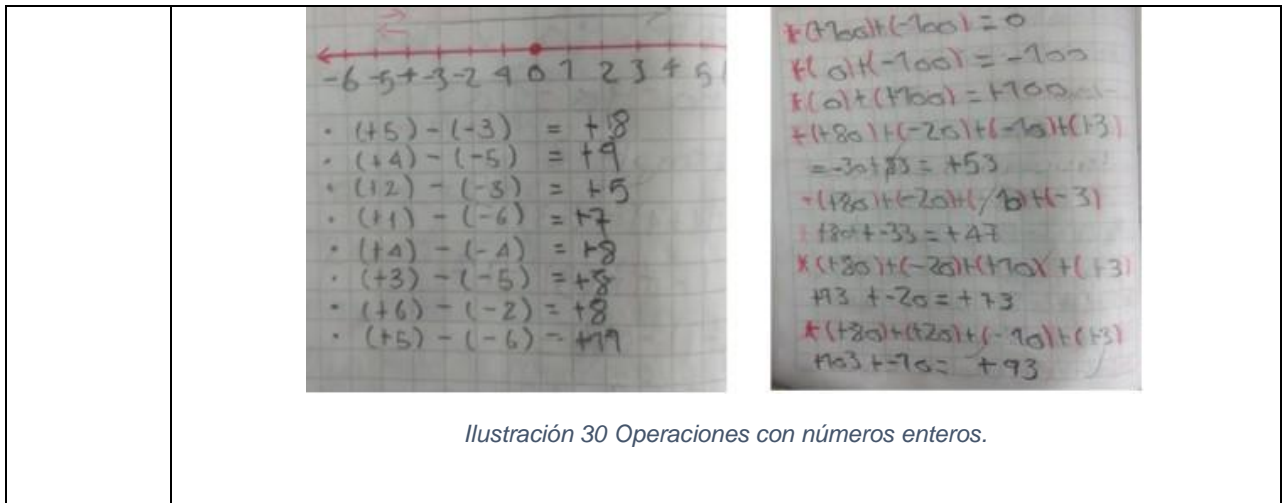 -6 -5 -4 -3 -2 1 0 1 2 3 4 5
· (+5) - (-3) = +8
· (+4) - (-5) = +9
· (+2) - (-3) = +5
· (+1) - (-6) = +7
· (+4) - (-4) = +8
· (+3) - (-5) = +8
· (+6) - (-2) = +8
· (+5) - (-6) = +11
*(+100)+(-100) = 0
*(0)+(-100) = -100
*(0)+(+100) = +100
*(+80)+(-20)+(-10)+(+3)
=-30+83 = +53
*(+80)+(-20)+(-10)+(-3)
+80+-33=+47
*(+80)+(-20)+(+10)+(+3)
+93 +-20=+73
*(+80)+(+20)+(-10)+(+3)
+103+-10= +93
Ilustración 30 Operaciones con números enteros.